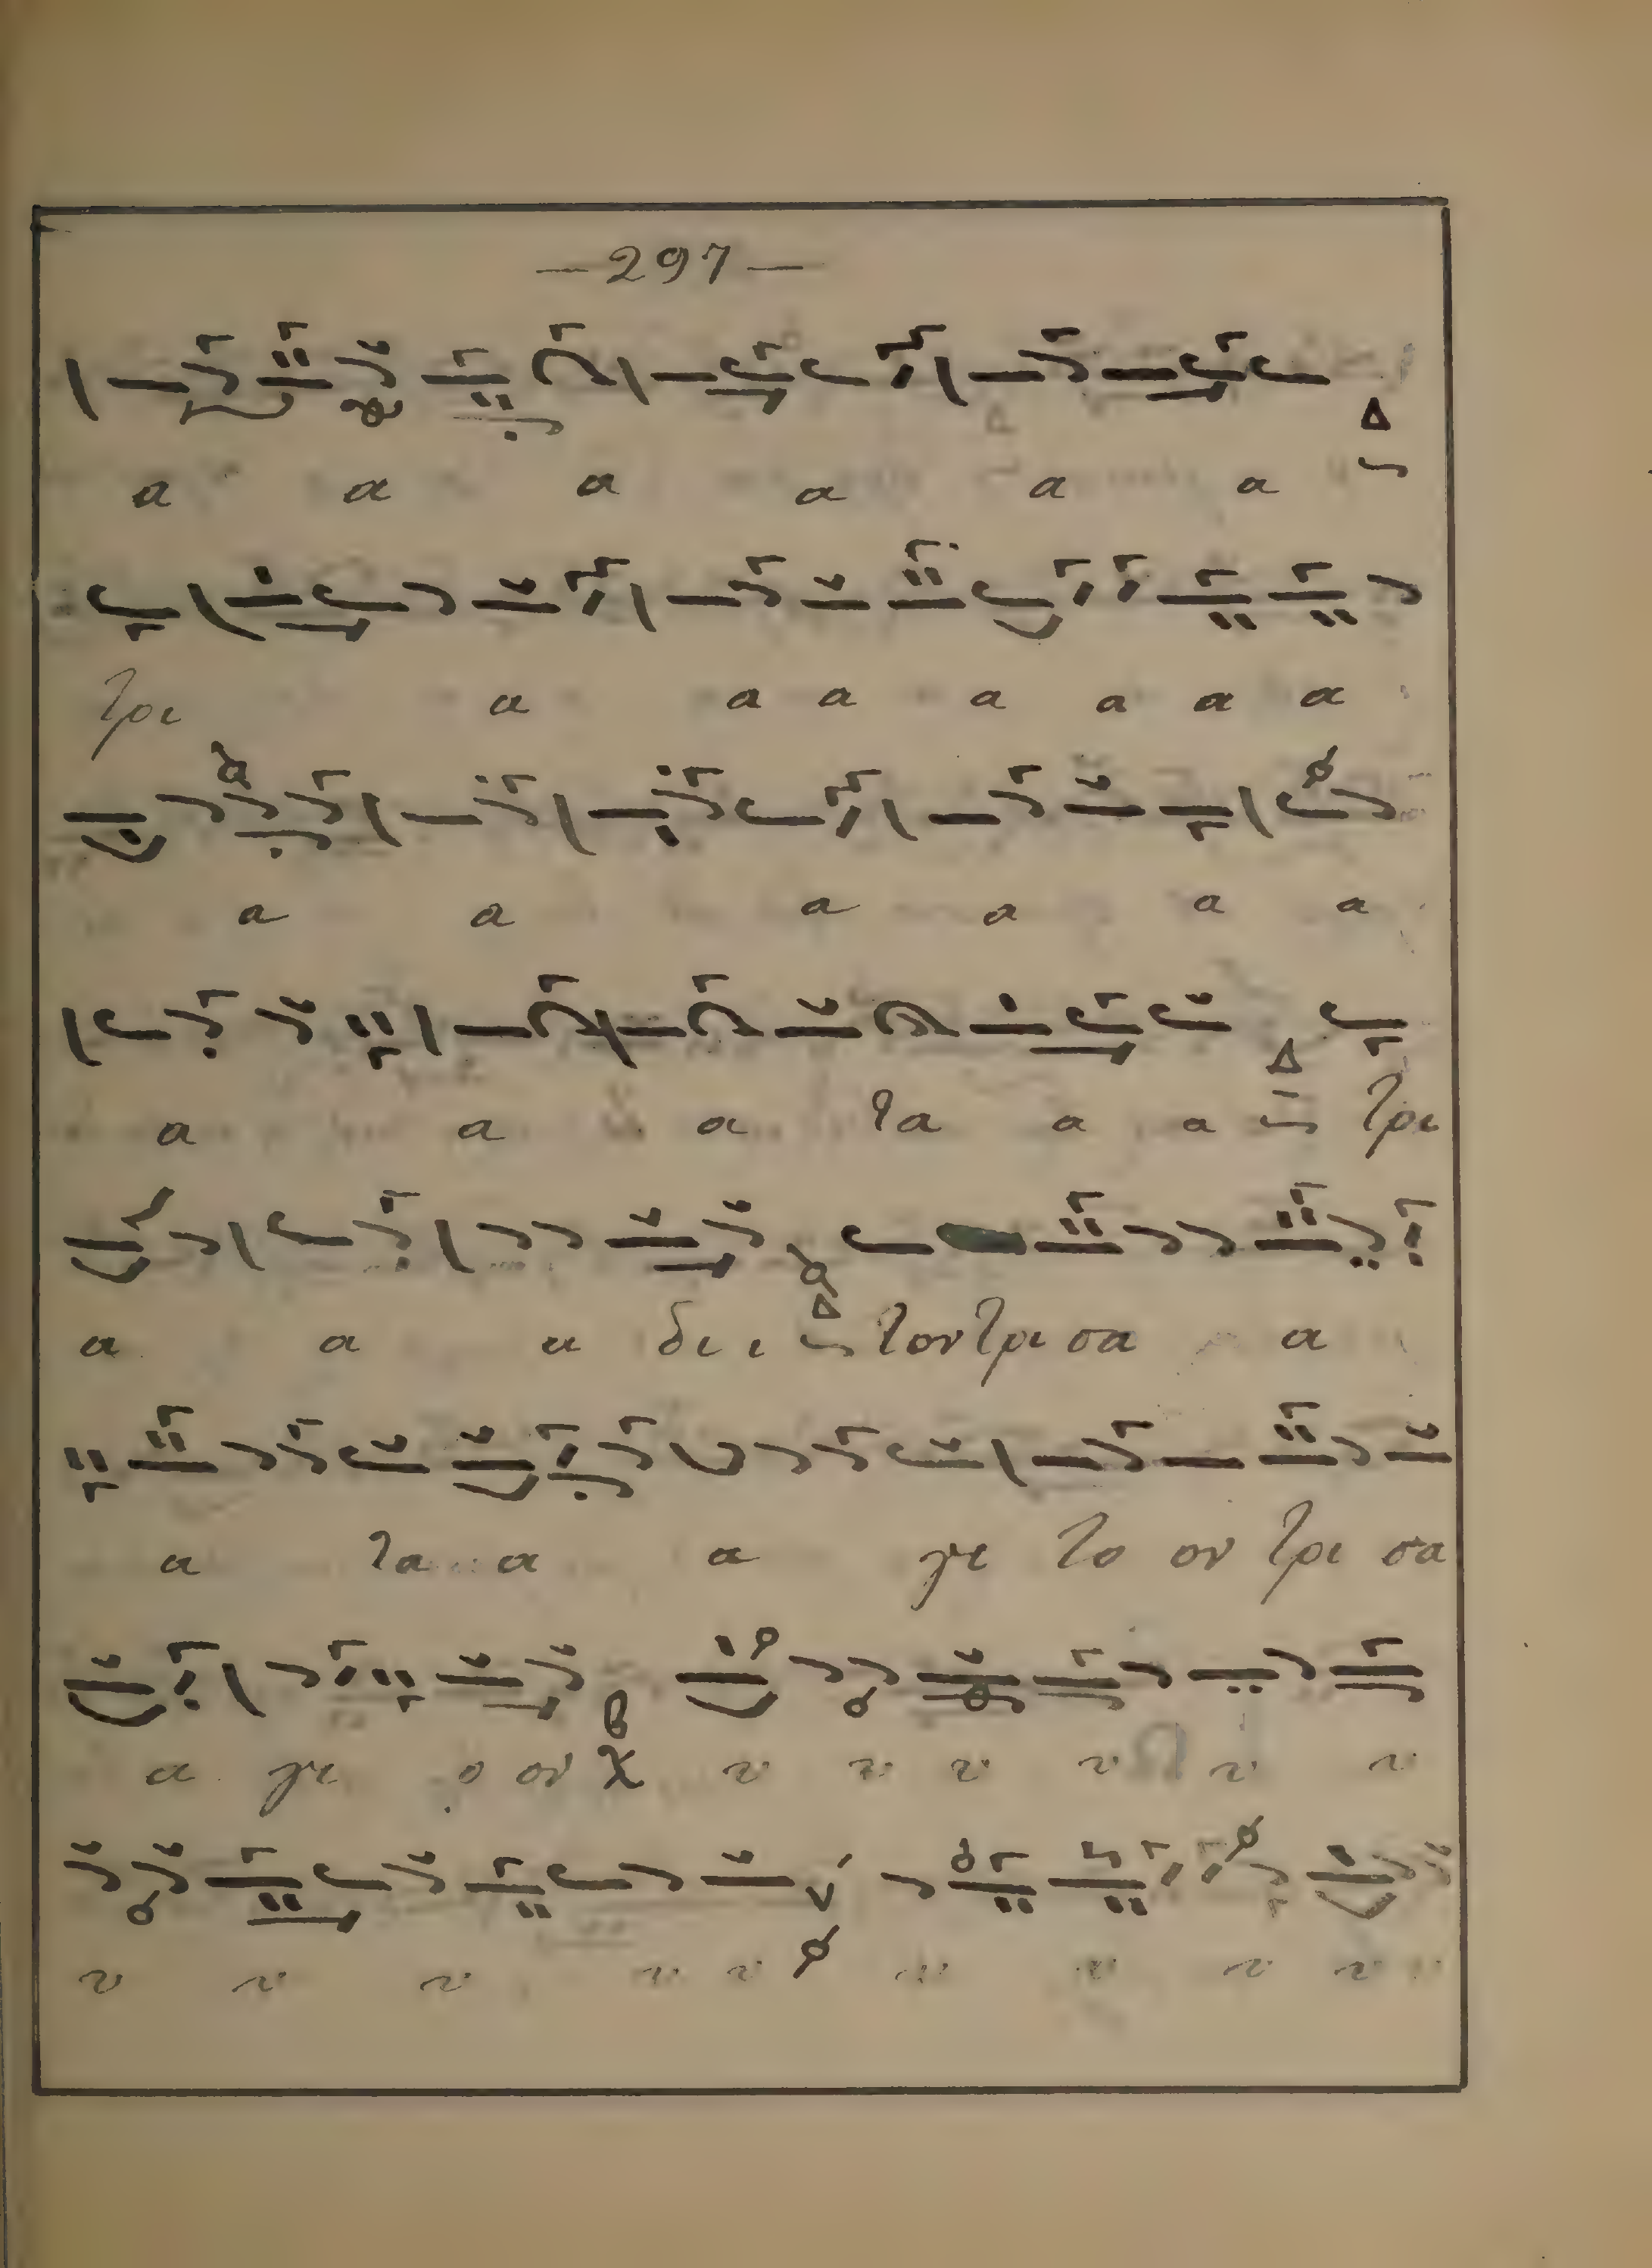 — 297 —
α α α α α α Δ
τρι α α α α α α α
α α α α α α
α α α τα α α Δ τρι
α α α δι ι Δ τον τρι σα α
α τα α α γι το ον τρι σα
α γι ο ον χ υ υ υ υ υ υ
υ υ υ υ υ υ υ υ υ